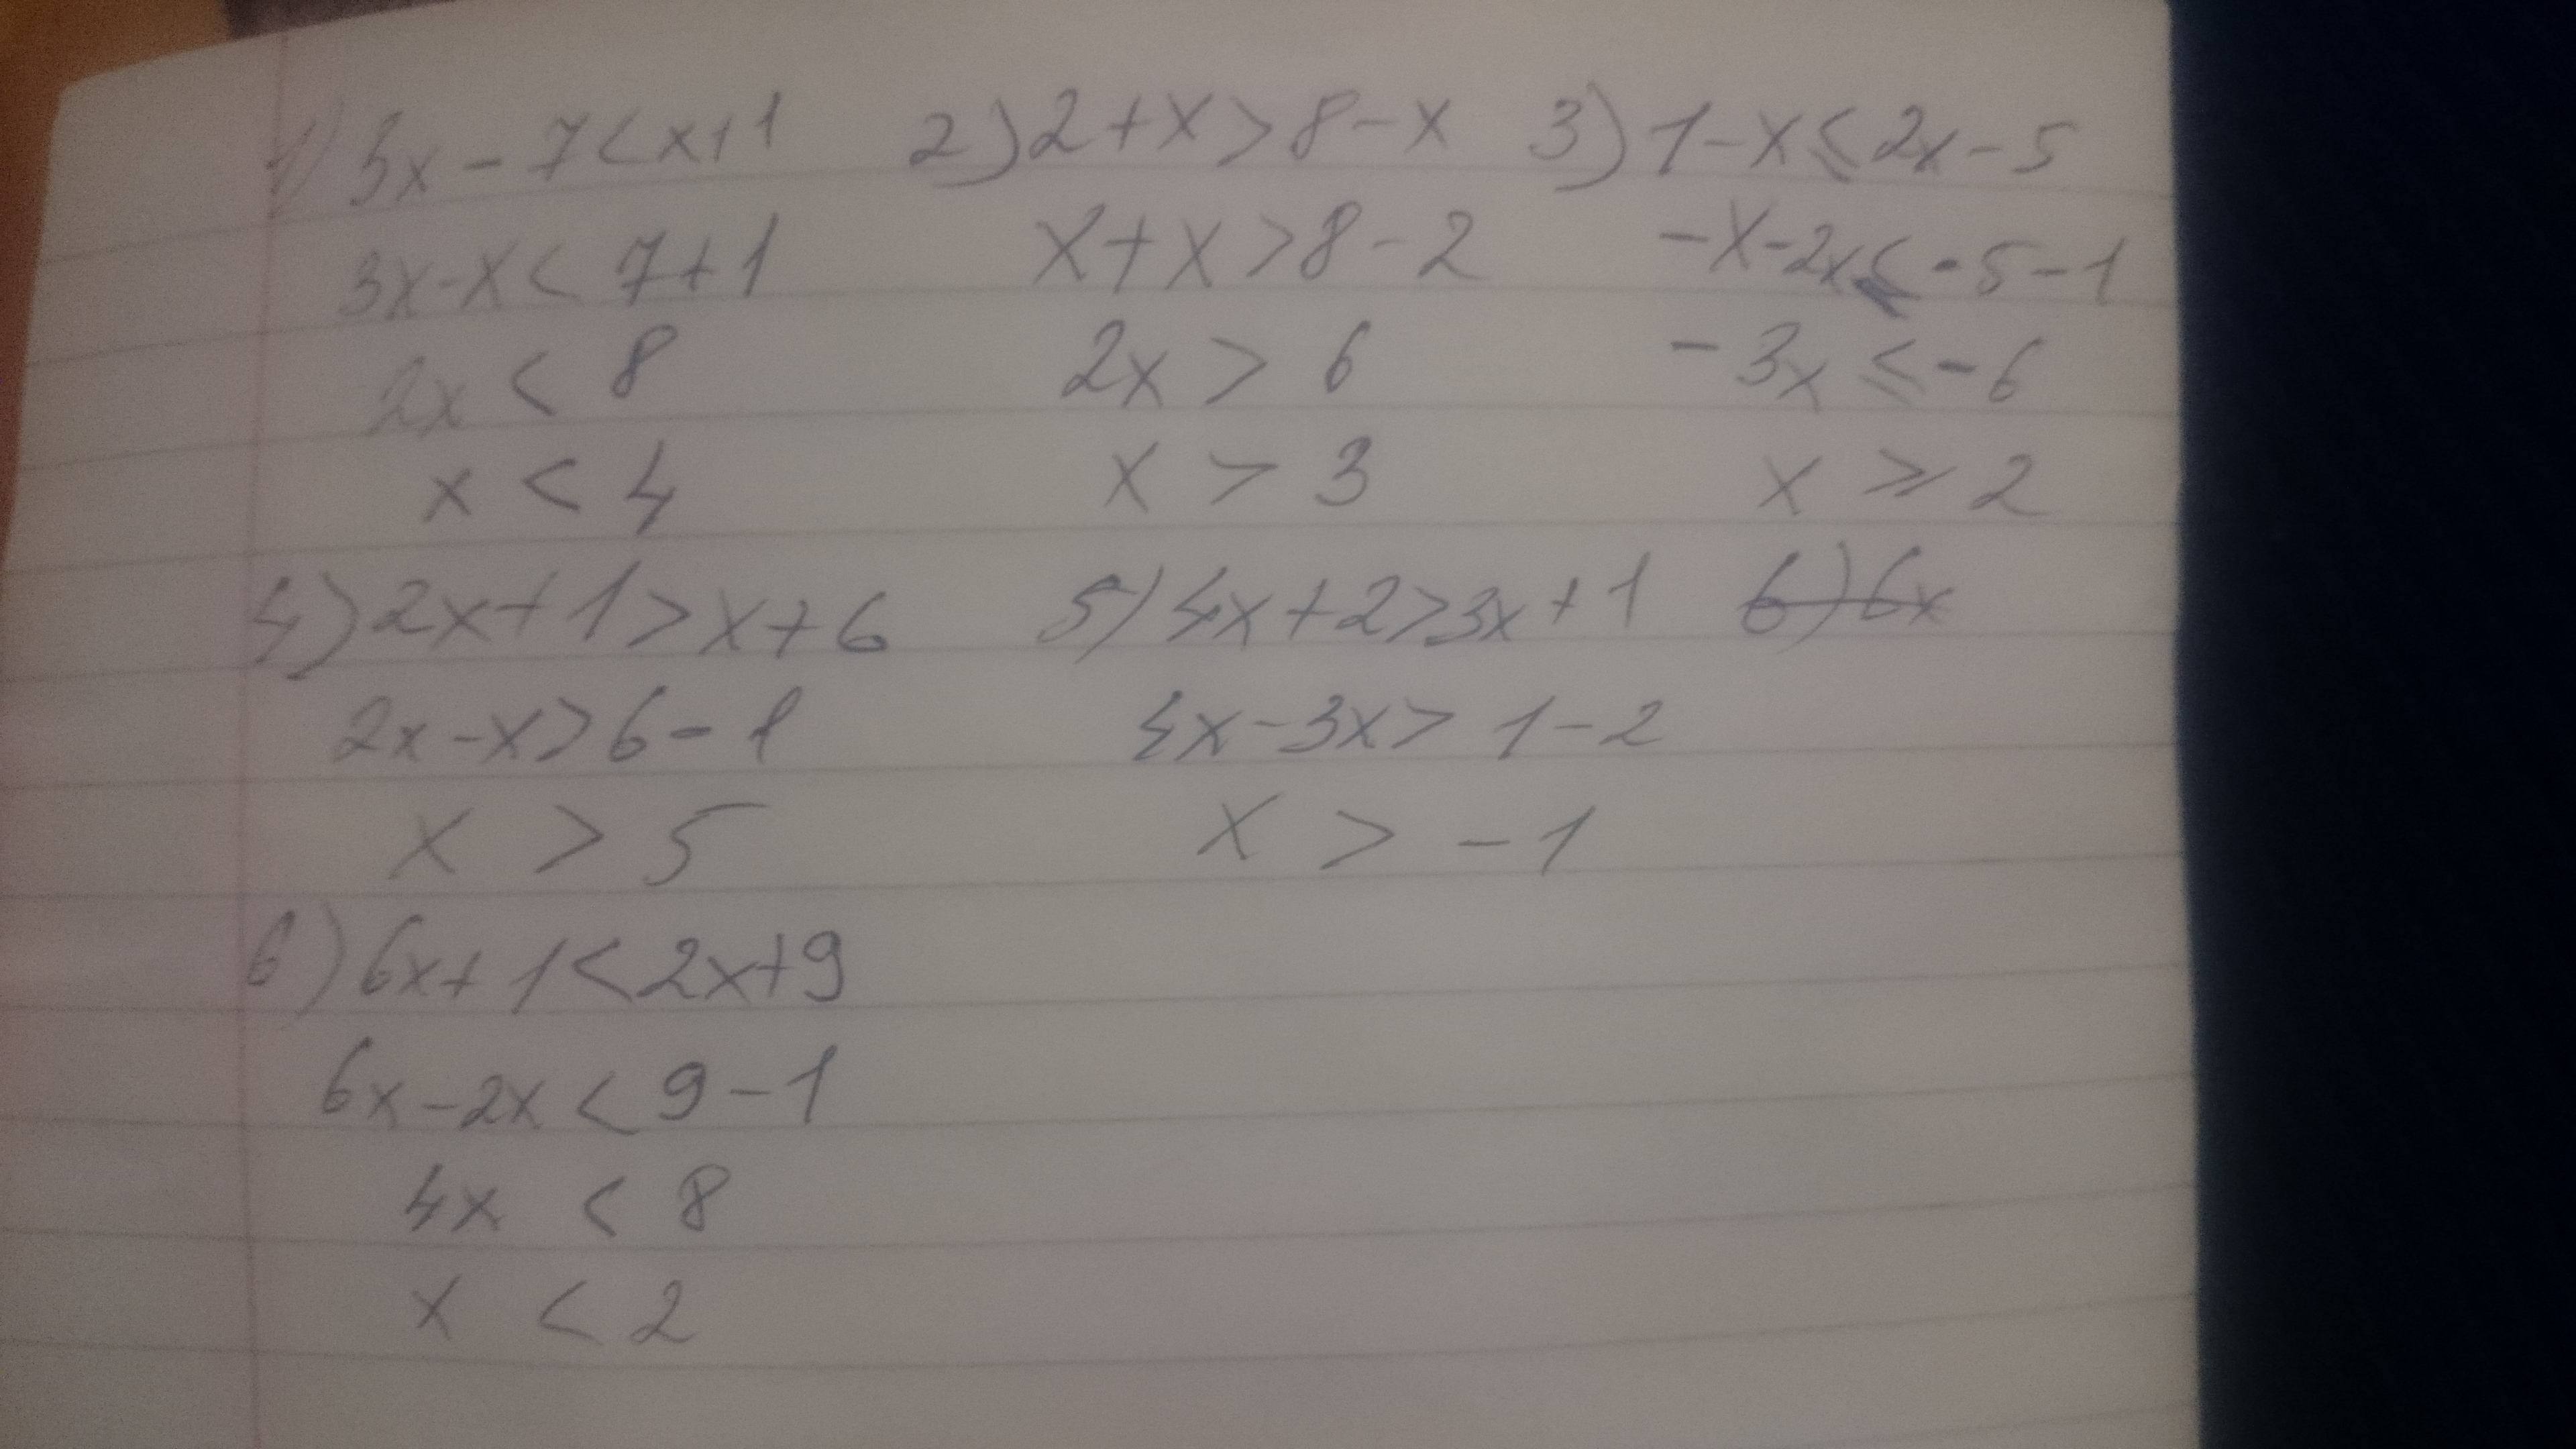 1) 3x - 7 < x + 1
3x - x < 7 + 1
2x < 8
x < 4
2) 2 + x > 8 - x
x + x > 8 - 2
2x > 6
x > 3
3) 1 - x ≤ 2x - 5
-x - 2x ≤ -5 - 1
-3x ≤ -6
x ≥ 2
4) 2x + 1 > x + 6
2x - x > 6 - 1
x > 5
5) 4x + 2 > 3x + 1
4x - 3x > 1 - 2
x > -1
6) 6x
6) 6x + 1 < 2x + 9
6x - 2x < 9 - 1
4x < 8
x < 2